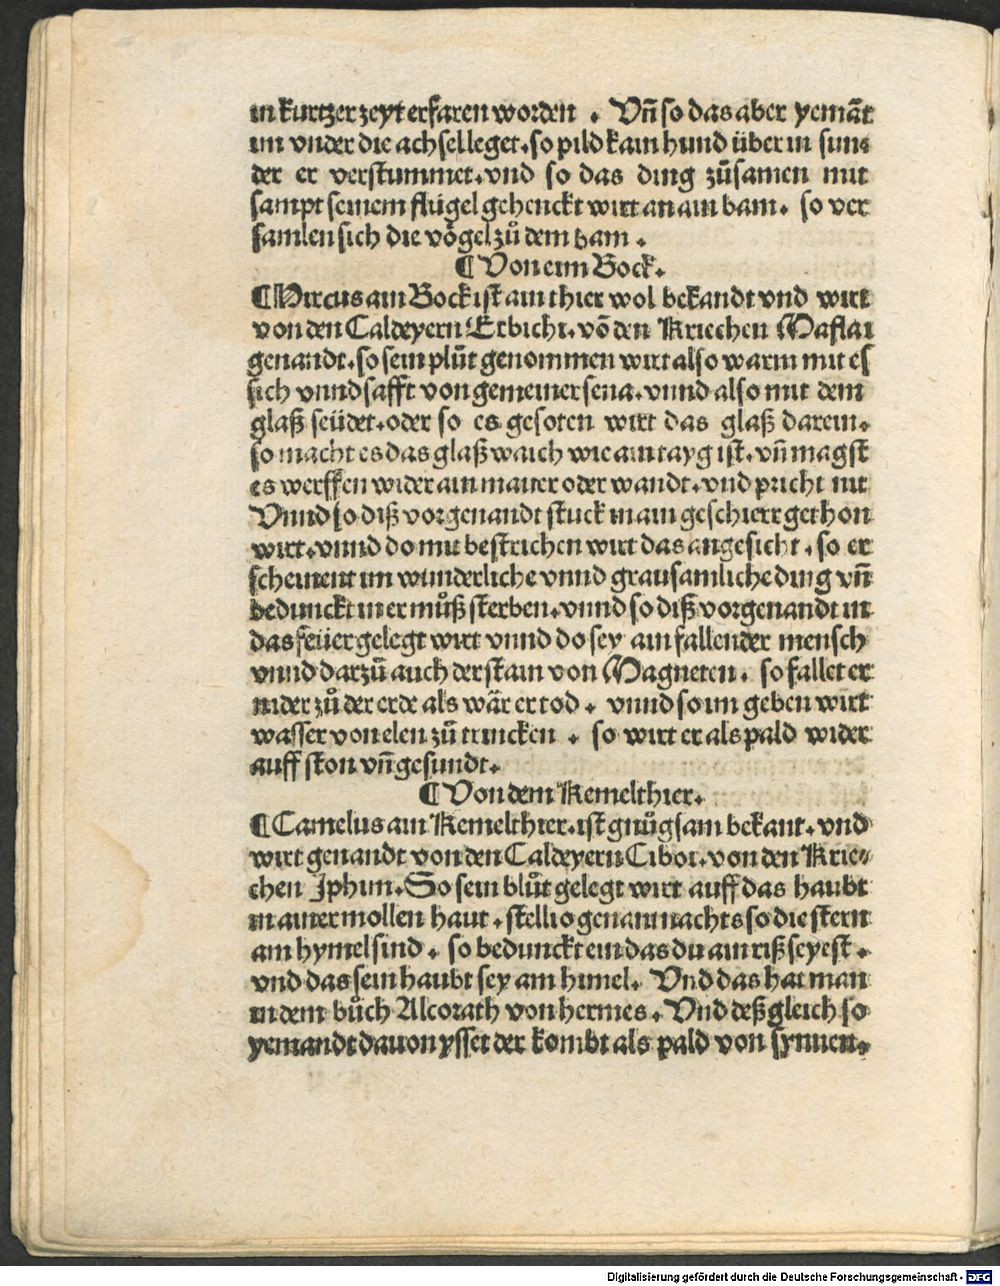 in kurtzer zeyt erfaren worden . Vñ so das aber yemãt
im vnder die achsel leget. so pild kain hund über in sun⸗
der er verstummet. vnd so das ding zůsamen mit
sampt seinem flügel gehenckt wirt an ain bam. so ver
samlen sich die vögel zů dem bam .
¶ Von eim Bock.
¶ Hircus ain Bock ist ain thier wol bekandt vnd wirt
von den Caldeyern Erbichi. võ den Kriechen Maflai
genandt. so sein plůt genommen wirt also warm mit es
sich vnnd safft von gemeiner sena. vnnd also mit dem
glaß seüdet. oder so es gesoten wirt das glaß darein.
so macht es das glaß waich wie ain tayg ist. vñ magst
es werffen wider ain mauer oder wandt. vnd pricht nit
Vnnd so diß vorgenandt stuck in ain geschierr gethon
wirt. vnnd do mit bestrichen wirt das angesicht . so er
scheinent im wunderliche vnnd grausamliche ding vñ
bedunckt in er můß sterben. vnnd so diß vorgenandt in
das feüer gelegt wirt vnnd do sey ain fallender mensch
vnnd darzů auch der stain von Magneten. so fallet er
nider zů der erde als wär er tod . vnnd so im geben wirt
wasser von elen zů trincken . so wirt er als pald wider
auff ston vñ gesundt.
¶ Von dem Kemelthier.
¶ Camelus ain Kemelthier. ist gnůgsam bekant. vnd
wirt genandt von den Caldeyern Ciboi. von den Krie⸗
chen Iphim. So sein blůt gelegt wirt auff das haubt
in ainer mollen haut . stellio genant nachts so die stern
am hymel sind . so bedunckt ein das du ain riß seyest .
vnd das sein haubt sey am himel. Vnd das hat man
in dem bůch Alcorath von hermes. Vnd deß gleich so
yemandt dauon ysset der kombt als pald von synnen.
Digitalisierung gefördert durch die Deutsche Forschungsgemeinschaft - DFG